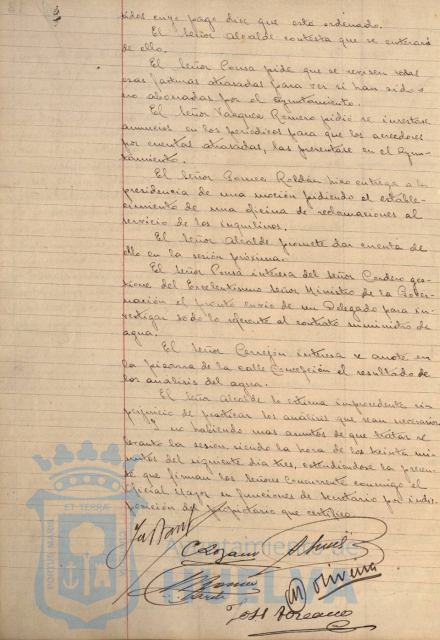 cuyo pago dice que está ordenado.
El Señor Alcalde contesta que se enterará
de ello.
El Señor Ponsa pide que se revisen todas
esas facturas atrasadas para ver si han sido o
no abonadas por el Ayuntamiento.
El Señor Vázquez Romero pidió se inserten
anuncios en los periódicos para que los acreedores
por cuentas atrasadas, las presenten en el Ayun-
tamiento.
El Señor Roldán hizo entrega a la
presidencia de una moción pidiendo el estable-
cimiento de una oficina de reclamaciones al
servicio de los inquilinos.
El Señor Alcalde promete dar cuenta de
ello en la sesión próxima.
El Señor Ponsa interesa del Señor Cordero ges-
tione del Excelentísimo Señor Ministro de la Gober-
nación el pronto envío de un Delegado para in-
vestigar todo lo referente al contrato suministro de
agua.
El Señor Cerrejón interesa se anote en
la pizarra de la calle Concepción el resultado de
los análisis del agua.
El Señor Alcalde lo estima improcedente sin
perjuicio de practicar los análisis que sean necesarios.
Y no habiendo mas asuntos de que tratar se
levanto la sesión, siendo la hora de los treinta mi-
nutos del siguiente día tres, extendiéndose la presen-
te que firman los Señores Concurrentes conmigo el
Oficial Mayor en funciones de Secretario por indis-
posición del propietario que certifico.
ET TERRÆ
PORTUS MARIS
Ayuntamiento de
HUELVA